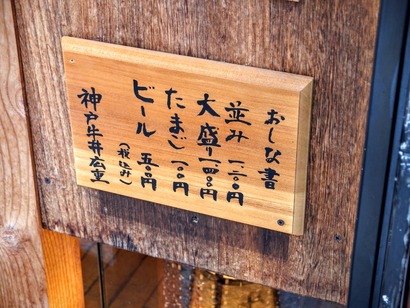 おしな書
並み 一二〇〇円
大盛り 一、四〇〇円
たまご 一〇〇円
ビール 五〇〇円
(税込み)
神戸牛丼広重